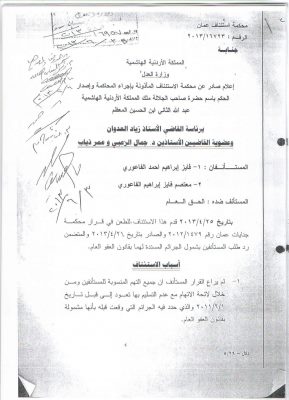 محكمة استئناف عمان
رقم : ٢٠١٣/١١٧٢٣
جناية
المملكة الأردنية الهاشمية
وزارة العدل
إعلام صادر عن محكمة الاستئناف المأذونة بإجراء المحاكمة وإصدار
الحكم باسم حضرة صاحب الجلالة ملك المملكة الأردنية الهاشمية
عبد الله الثاني ابن الحسين المعظم
برئاسة القاضي الأستاذ زياد العدوان
وعضوية القاضيين الأستاذين د. جمال الزعبي و عمر ذياب
المستأنفان : ١- فايز إبراهيم احمد الفاعوري
٢- معتصم فايز إبراهيم الفاعوري
المستأنف ضده : الحق العام
بتاريخ ٢٠١٣/٤/٢٥ قدم هذا الاستئناف للطعن في قرار محكمة
جنايات عمان رقم ٢٠١٢/١٤٧٩ والصادر بتاريخ ٢٠١٣/٤/٢١ والمتضمن
رد طلب المستأنفين بشمول الجرائم المسندة لهما بقانون العفو العام.
أسباب الاستئناف
١- لم يراع القرار المستأنف أن جميع التهم المنسوبة للمستأنفين ومن
خلال لائحة الاتهام مع عدم التسليم بها تعود إلى قبل تاريخ
٢٠١١/٦/١ والذي حدد فيه الجرائم التي وقعت قبله بأنها مشمولة
بقانون العفو العام.